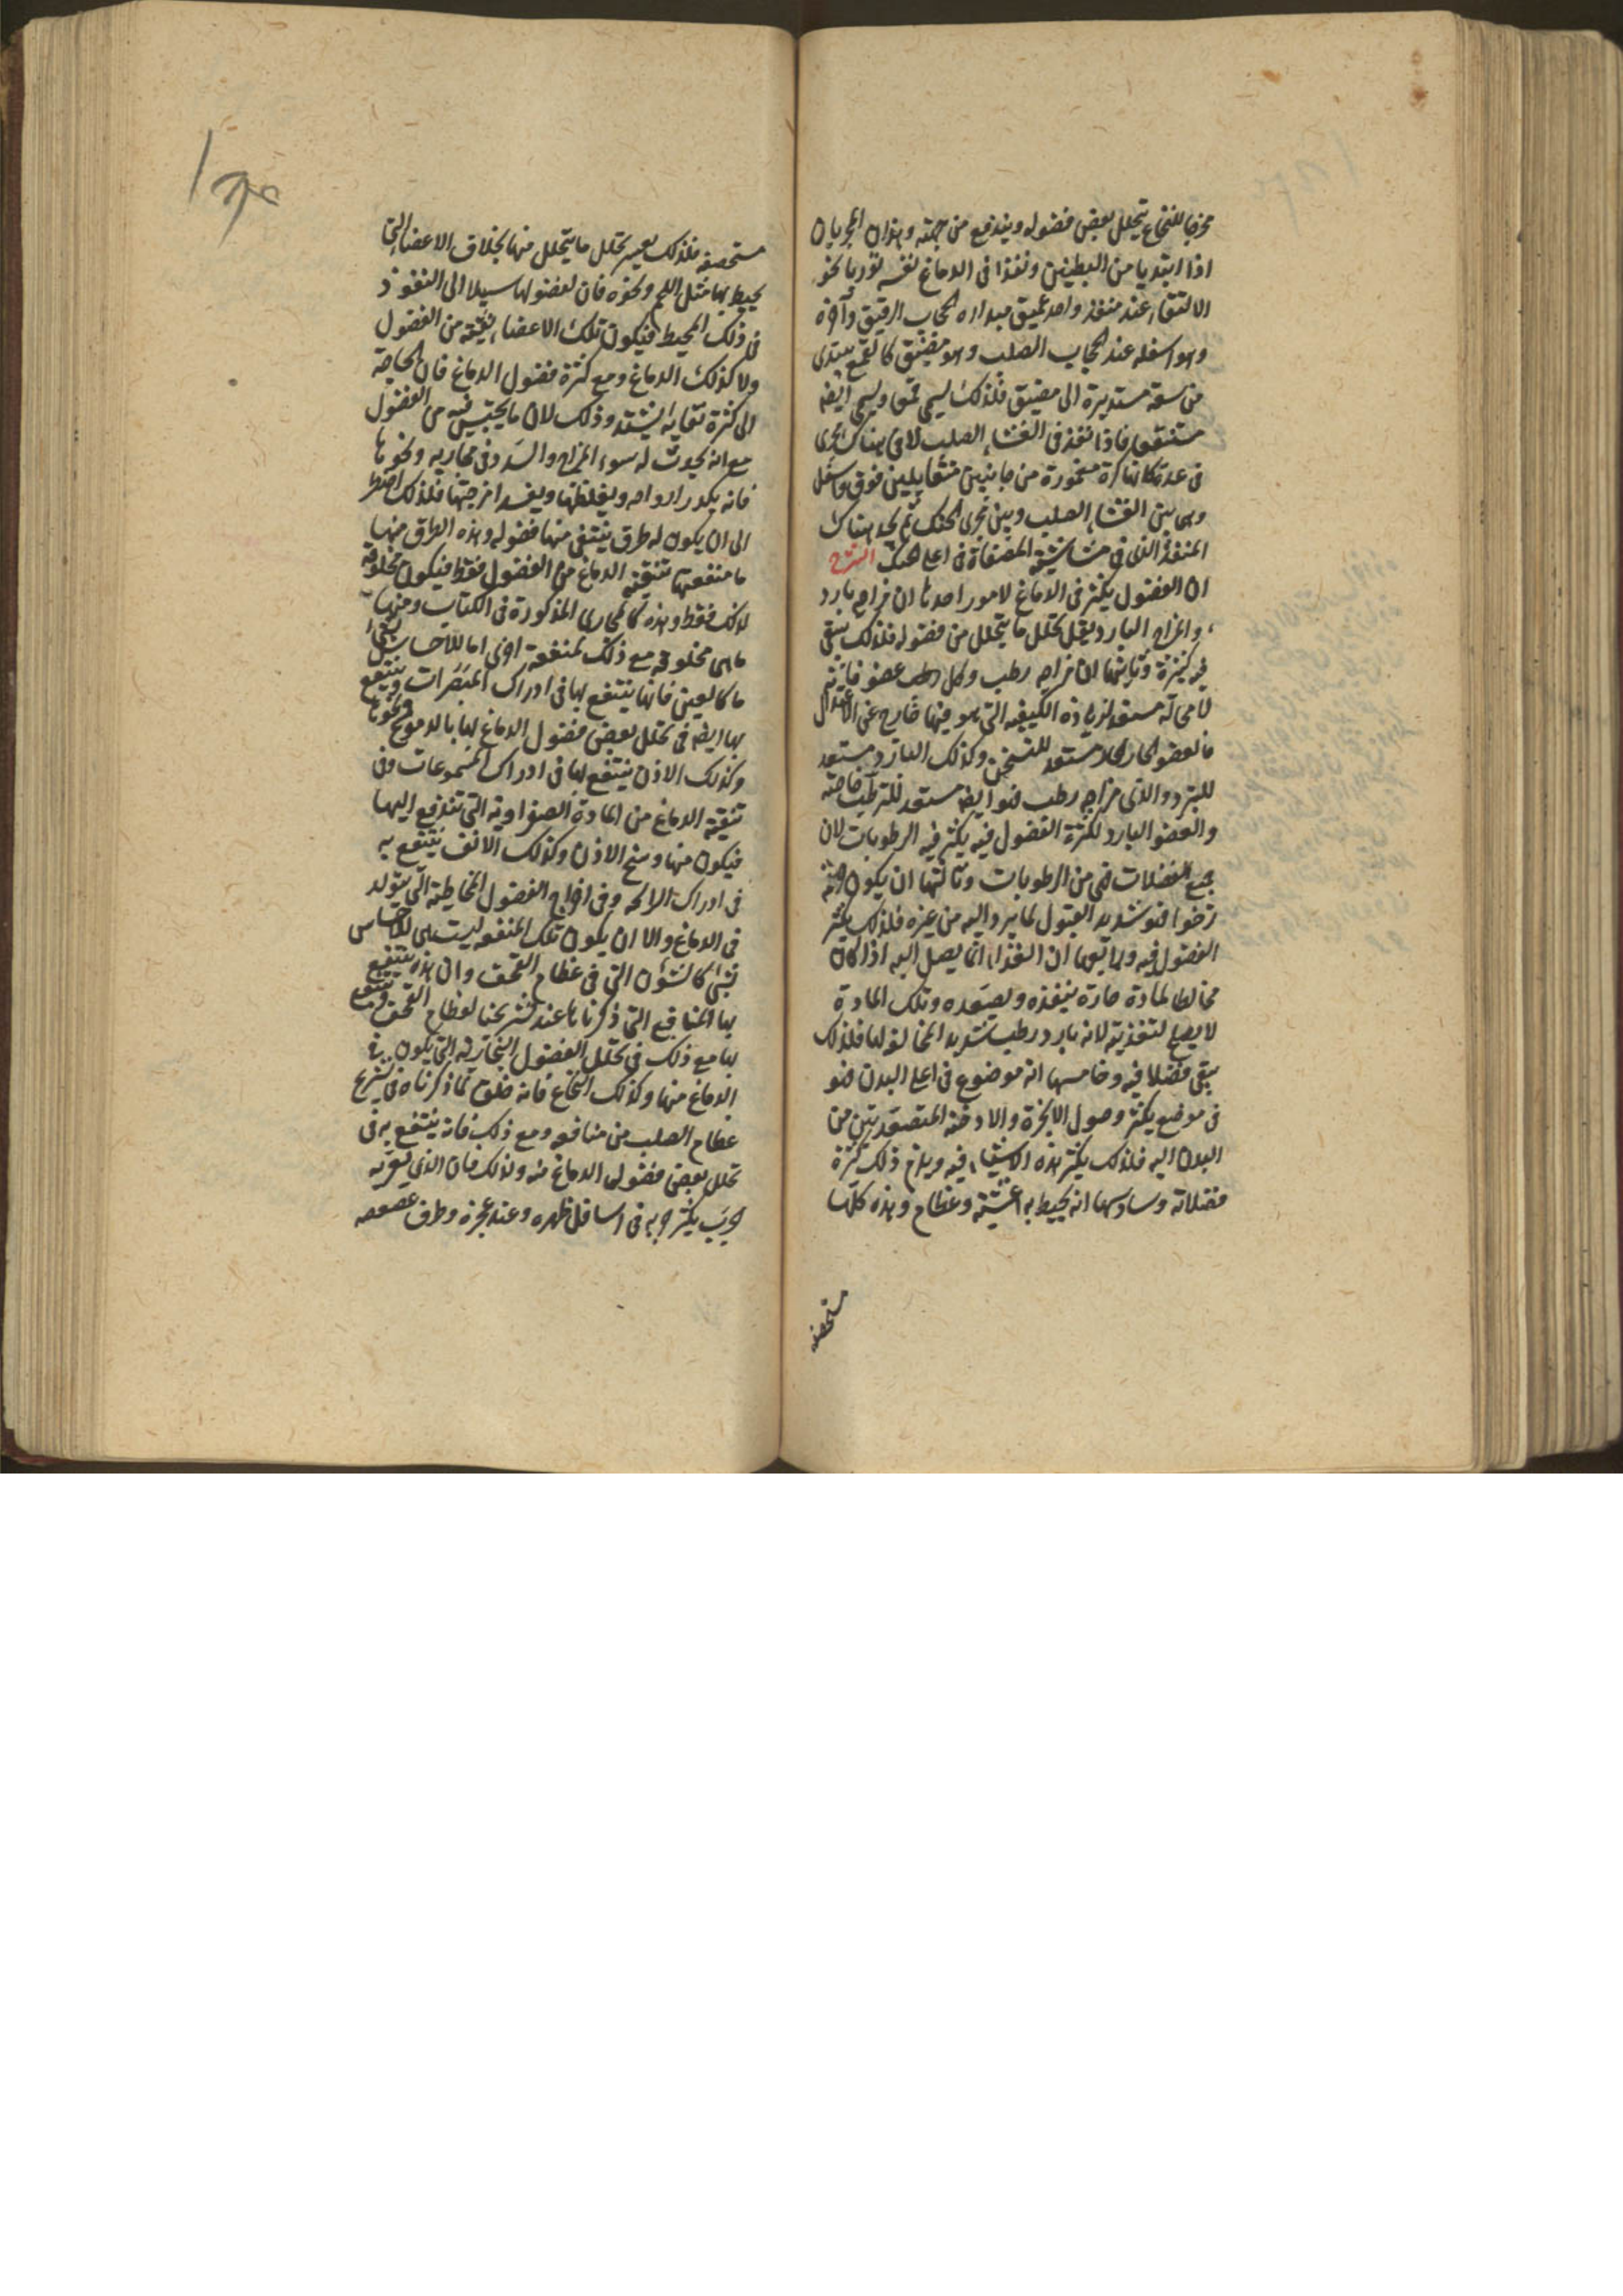 مخرجا للنخاع يتحلل بعض فضوله ويندفع من جهته وهذان المجريان
اذا ابتديا من البطينين ونفذا فى الدماغ نفسه توربا نحو
الالتقاء عند منفذ واحد عميق مبداه الحجاب الرقيق وآخره
وهو اسفله عند الحجاب الصلب وهو مضيق كالقمع يبتدى
من سعة مستديرة الى مضيق فلذلك يسمى قمعا ويسمى ايضا
مستنقعا فاذا نفذ فى الغشاء الصلب لاقى هناك مجرى
فى غدة كانها كرة مغمورة من جانبين متقابلين فوق واسفل
وهى بين الغشاء الصلب وبين مجرى الحنك ثم يجد هناك
المنفذ الذى فى مشاشية المصفاة فى اعلى الحنك الشرح
ان الفضول يكثر فى الدماغ لامور احدها ان مزاجه بارد
والمزاج البارد يقل تحلل ما يتحلل من فضوله فلذلك يبقى
فيه كثيرة وثانيها ان مزاجه رطب وكل عضو فانه
لا محالة مستعد لزيادة الكيفية التى هو فيها خارج عن الاعتدال
فالعضو الحار مستعد للتسخن وكذلك البارد مستعد
للتبرد والذى مزاجه رطب فهو ايضا مستعد للترطب خاصة
والعضو البارد لكثرة الفضول فيه يكثر فيه الرطوبات لان
جميع الفضلات هى من الرطوبات وثالثها ان يكون
رخوا فهو شديد القبول لما يرد اليه من غيره فلذلك يكثر
الفضول فيه ورابعها ان الغذاء انما يصل اليه اذا كان
مخالطا لمادة حارة ينفذه ويصعده وتلك المادة
لا يصلح لتغذيته لانه بارد رطب شديد المخالفة لها فلذلك
يبقى فضلا فيه وخامسها انه موضوع فى اعلى البدن فهو
فى موضع يكثر وصول الابخرة والادخنة المتصعدتين من
البدن اليه فلذلك يكثر هذه الاشياء فيه ويلزم ذلك كثرة
فضلاته وسادسها انه يحيط به اغشية وعظام وهذه كلها
مستحصفة
مستحصفة فلذلك يعسر تحلل ما يتحلل منها بخلاف الاعضاء التى
يحيط بها مثل اللحم ونحوه فان لفضولها سبيلا الى النفوذ
فى ذلك المحيط فيكون تلك الاعضاء نقية من الفضول
ولا كذلك الدماغ ومع كثرة فضول الدماغ فان الحاجة
الى كثرة نقايه شديدة وذلك لان ما يحتبس فيه من الفضول
مع انه يحدث له سوء المزاج والسدد فى مجاريه ونحوها
فانه يكدر ارواحه ويغلظها ويفسد امزجتها فلذلك اضطر
الى ان يكون له طرق ينتفى منها فضوله وهذه الطرق منها
ما منفعتها تنقية الدماغ من الفضول فقط فيكون مخلوقة
لذلك فقط وهذه كالمجارى المذكورة فى الكتاب ومنها
ما هى مخلوقة مع ذلك لمنفعة اخرى اما للاحساس بشىء
ما كالعين فانها ينتفع بها فى ادراك المبصرات وينتفع
بها ايضا فى تحلل بعض فضول الدماغ بها بالدموع ونحوها
وكذلك الاذن ينتفع بها فى ادراك المسموعات وفى
تنقية الدماغ من المادة الصفراوية التى تندفع اليها
فيكون منها وسخ الاذن وكذلك الانف ينتفع به
فى ادراك الرائحة وفى اخراج الفضول المخاطية التى يتولد
فى الدماغ والا ان يكون تلك المنفعة ليست هى للاحساس
بشىء كالشئون التى فى عظام القحف وان هذه ينتفع
بها المنافع التى ذكرناها عند تشريحنا لعظام القحف وينتفع
بها مع ذلك فى تحلل الفضول البخارية التى يكون فى
الدماغ منها وكذلك النخاع فانه خلق لما ذكرناه فى تشريح
عظام الصلب من منافعه ومع ذلك فانه ينتفع به فى
تحلل بعض فضول الدماغ منه ولذلك فان الذى يعتريه
الجرب يكثر جربه فى اسافل ظهره وعند عجزه وطرف عصعصه